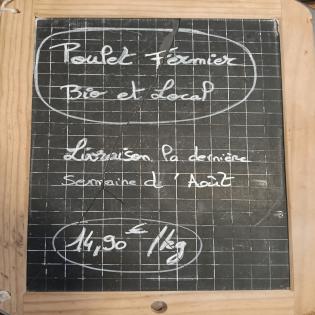 Poulet Fermier
Bio et Local
Livraison la dernière
semaine d'Août
14,90 € /kg